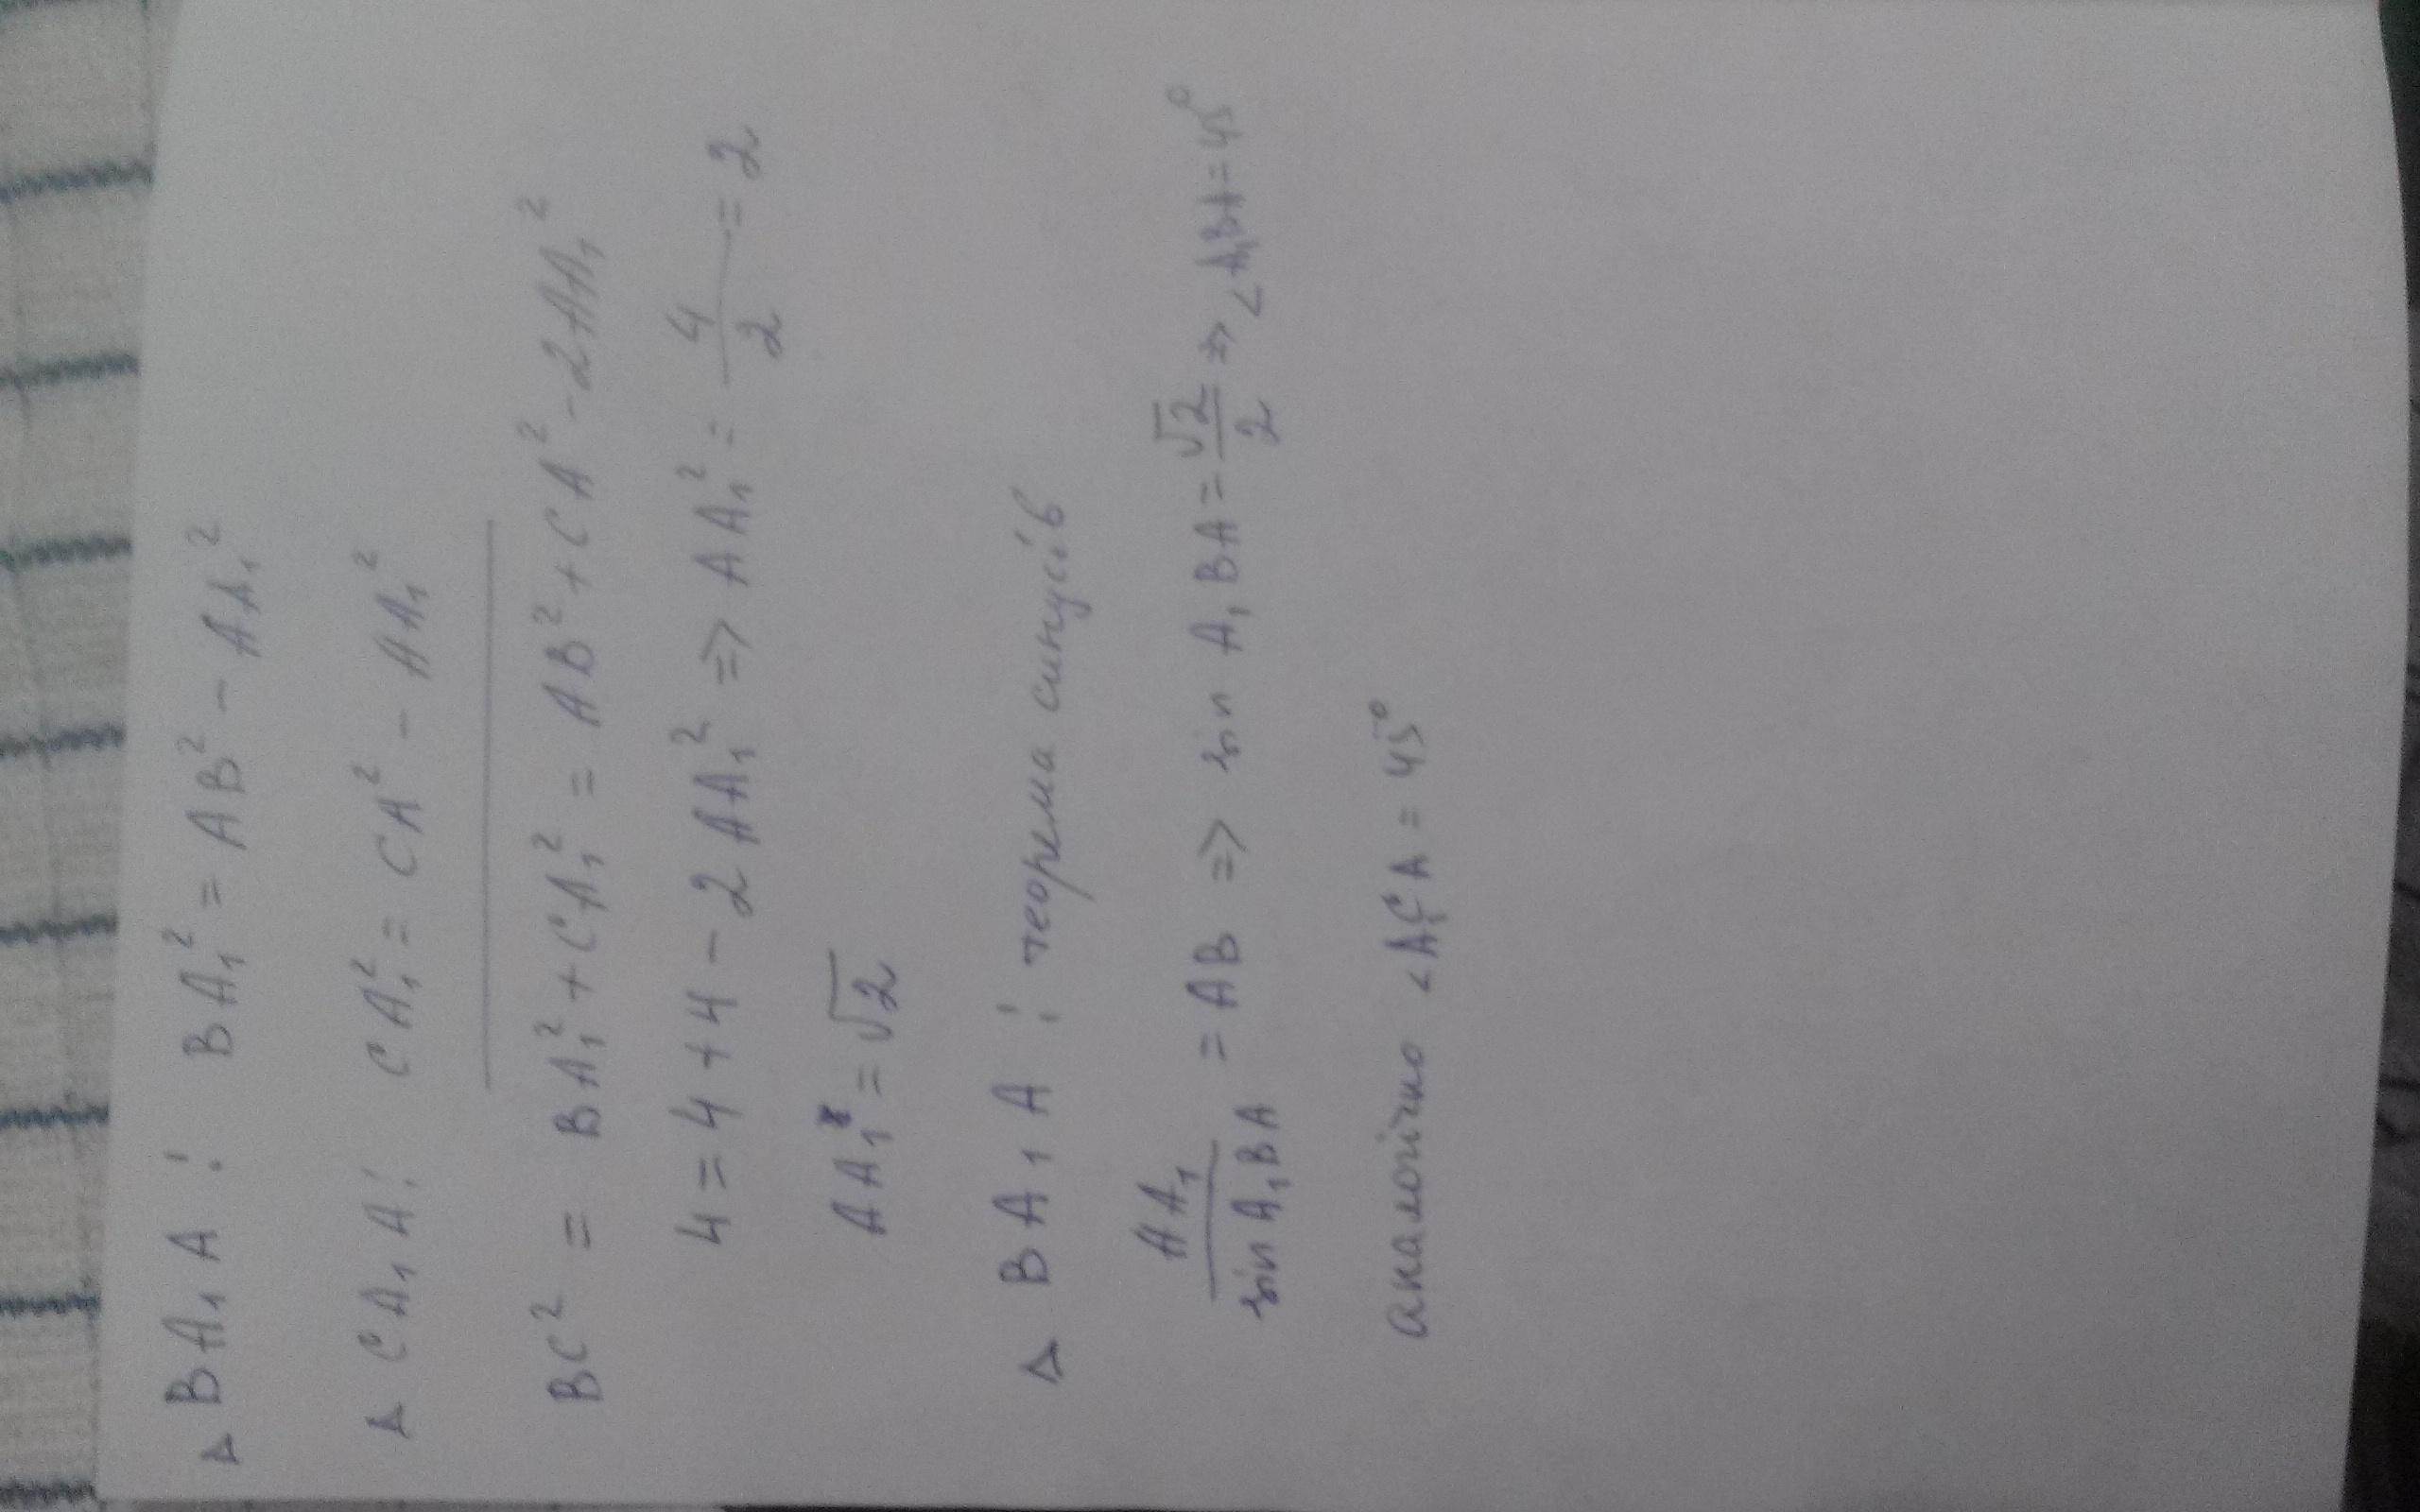 Δ BA₁A : BA₁² = AB² - AA₁²
Δ CA₁A : CA₁² = CA² - AA₁²
BC² = BA₁² + CA₁² = AB² + CA² - 2AA₁²
4 = 4 + 4 - 2AA₁² => AA₁² = 4/2 = 2
AA₁ = √2
Δ BA₁A : теорема синусів
AA₁/sin A₁BA = AB => sin A₁BA = √2/2 => <A₁BA = 45°
аналогічно <A₁CA = 45°